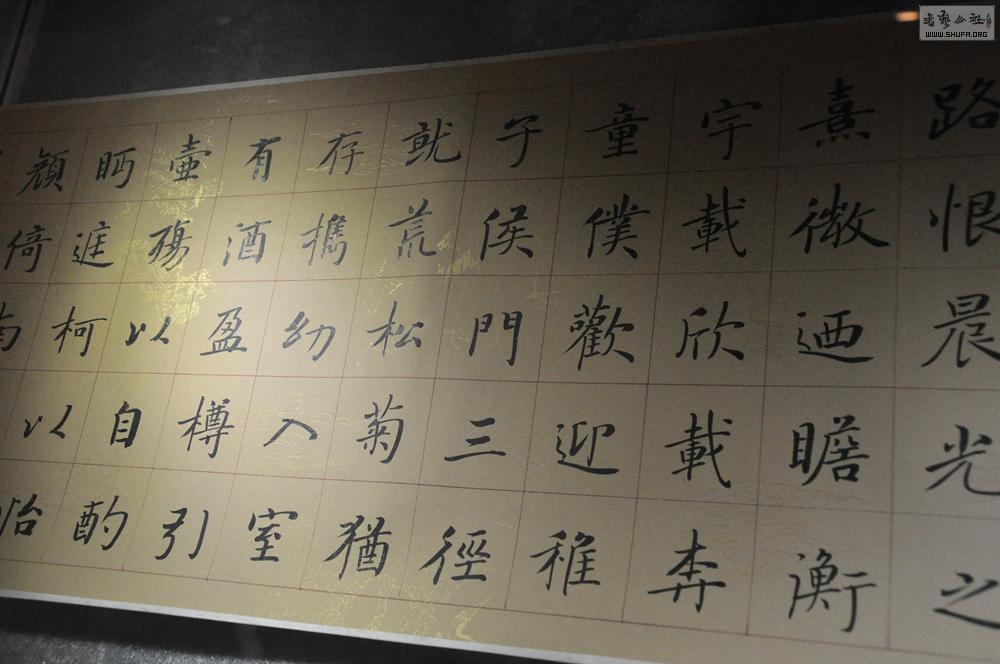 路恨晨光之
熹微迺瞻衡
宇載欣載奔
童僕歡迎稚
子候門三徑
就荒松菊猶
存攜幼入室
有酒盈樽引
壺觴以自酌
眄庭柯以怡
顔倚南
書藝公社
WWW.SHUFA.ORG